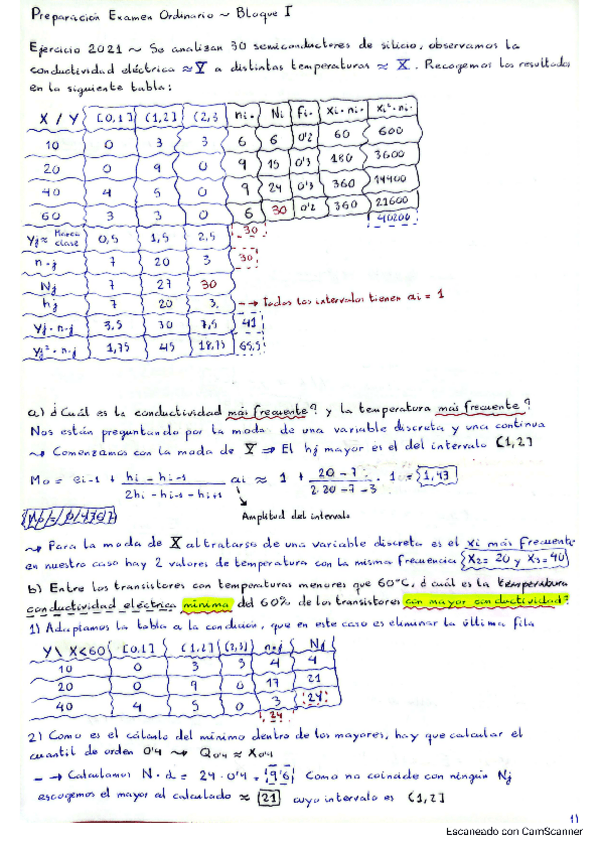 Preparación Examen Ordinario ~ Bloque I
Ejercicio 2021 ~ Se analizan 30 semiconductores de silicio, observamos la
conductividad eléctrica ≈ Y a distintas temperaturas ≈ X. Recogemos los resultados
en la siguiente tabla:
X / Y [0,1] (1,2] (2,3 ni. Ni fi. xi·ni. xi²·ni.
10 0 3 3 6 6 0'2 60 600
20 0 9 0 9 15 0'3 180 3600
40 4 5 0 9 24 0'3 360 14400
60 3 3 0 6 30 0'2 360 21600
40200
Yj ≈ Marca clase 0,5 1,5 2,5 30
n·j 7 20 3 30
Nj 7 27 30
hj 7 20 3 → Todos los intervalos tienen ai = 1
Yj·n·j 3,5 30 7,5 41
Yj²·n·j 1,75 45 18,75 65,5
a) ¿Cuál es la conductividad más frecuente? y la temperatura más frecuente?
Nos están preguntando por la moda de una variable discreta y una continua
~ Comenzamos con la moda de Y ⇒ El hj mayor es el del intervalo (1,2]
Mo = ei-1 + hi - hi-1 / 2hi - hi-1 - hi+1 ai ≈ 1 + 20 - 7 / 2·20 - 7 - 3 · 1 = 1,43
Amplitud del intervalo
~ Para la moda de X al tratarse de una variable discreta es el xi más frecuente
en nuestro caso hay 2 valores de temperatura con la misma frecuencia X2 = 20 y X3 = 40
b) Entre los transistores con temperaturas menores que 60°C, ¿cuál es la temperatura
conductividad eléctrica mínima del 60% de los transistores con mayor conductividad?
1) Adaptamos la tabla a la condición, que en este caso es eliminar la última fila
Y\ X<60 [0,1] (1,2] (2,3] n·j Nj
10 0 3 3 4 4
20 0 9 0 17 21
40 4 5 0 3 24
24
2) Como es el cálculo del mínimo dentro de los mayores, hay que calcular el
cuantil de orden 0'4 ~ Q0'4 ≈ X0'4
- → Calculamos N · α = 24 · 0'4 = 9'6 Como no coincide con ningún Nj
escogemos el mayor al calculado ≈ 21 cuyo intervalo es (1,2]
1)
Escaneado con CamScanner